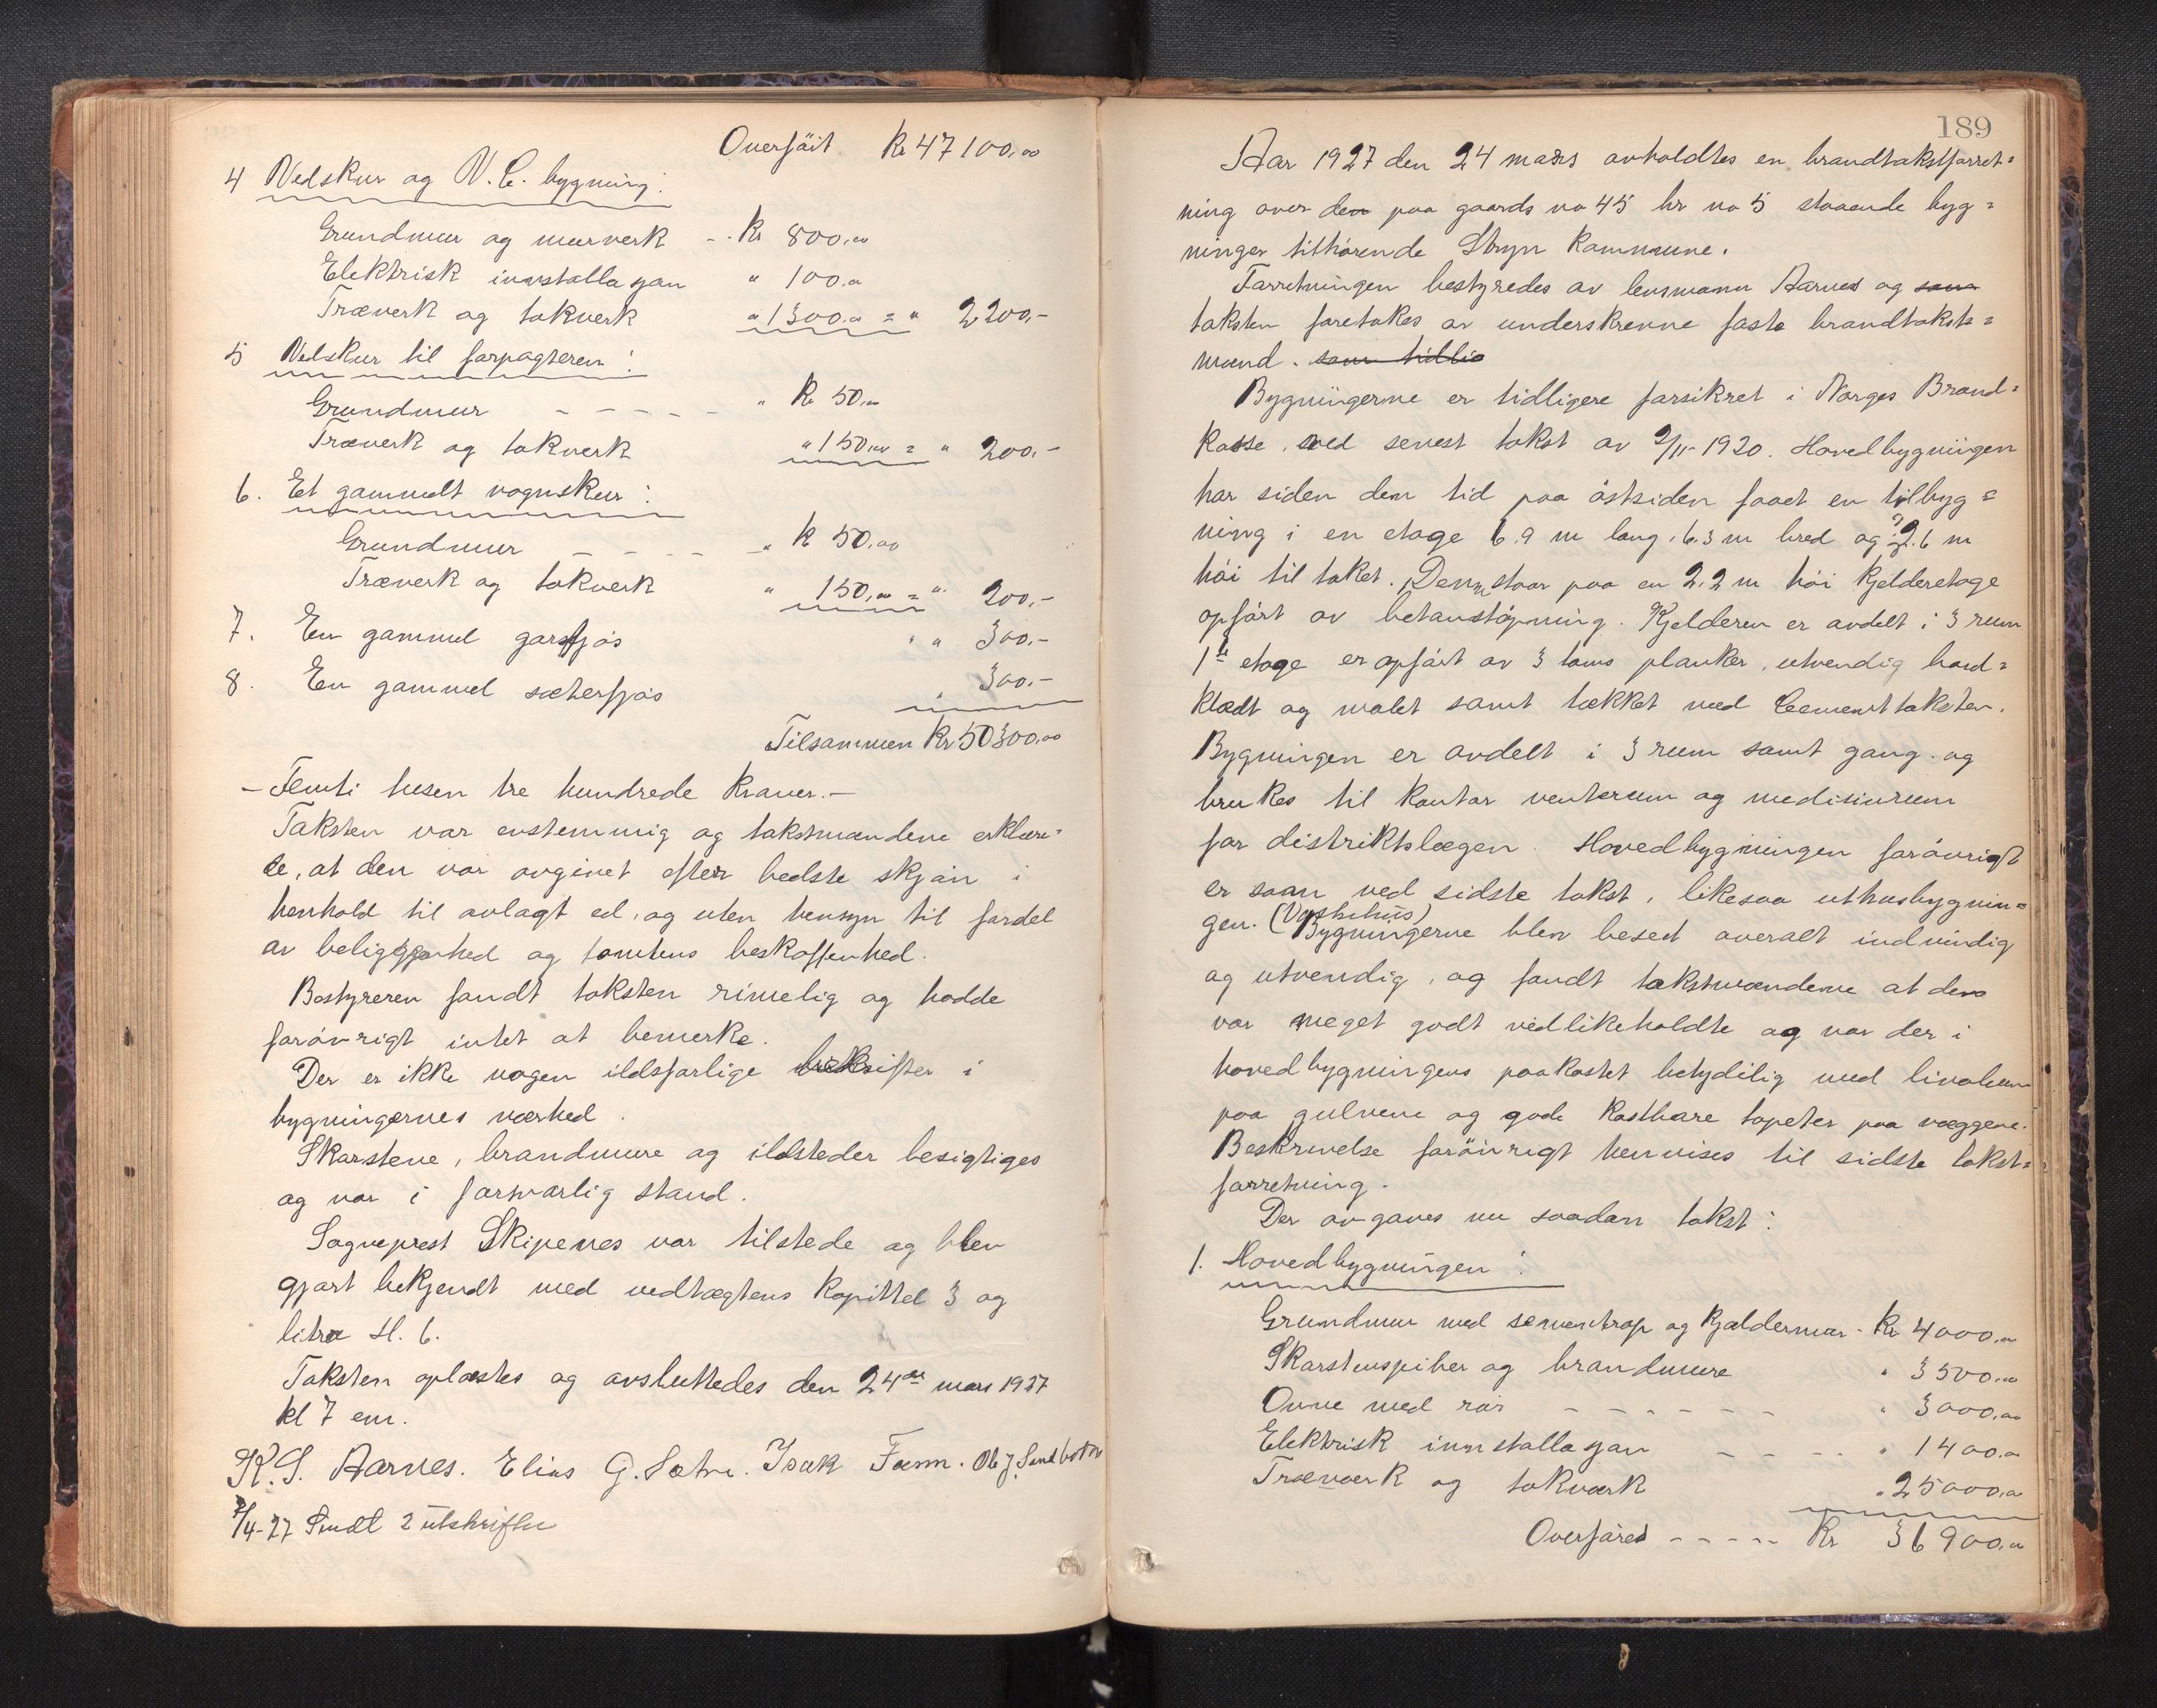 Overført Kr 47100,00
4 Vedskur og V.C. bygning:
Grundmur og murverk - . Kr 800,00
Elektrisk innstallasjon " 100,00
Træverk og takverk " 1300,00 = " 2200,-
5 Vedskur til forpagteren:
Grundmur - - - - - " Kr 50,00
Træverk og takverk " 150,00 = " 200,-
6. Et gammelt vognskur:
Grundmur - - - - - " k 50,00
Træverk og takverk " 150,00 = " 200,-
7. En gammel garsfjøs " " 300,-
8. En gammel sæterfjøs " 300,-
Tilsammen Kr 50300,00
- Femti tusen tre hundrede kroner. -
Taksten var enstemmig og takstmændene erklær=
te, at den var avgivet efter bedste skjøn i
henhold til avlagt ed, og uten hensyn til fordel
av beliggenhed og tomtens beskaffenhed.
Bestyreren fandt taksten rimelig og hadde
forøvrigt intet at bemerke.
Der er ikke nogen ildsfarlige bedrifter i
bygningernes nærhed.
Skorstene, brandmure og ildsteder besigtiges
og var i forsvarlig stand.
Sogneprest Skipenes var tilstede og blev
gjort bekjendt med vedtægtens kapittel 3 og
litra H. 6.
Taksten oplæstes og avsluttedes den 24de mars 1927
kl 7 em.
K. S. Aarnes. Elias G. Sætre. Isak Form. Ole J. Sandbotn
/4-27 Sendt 2 utskrifter
189
Aar 1927 den 24 mars avholdtes en brandtakstforret=
ning over den paa gaards no 45 br no 5 staaende byg=
ninger tilhørende Stryn kommune.
Forretningen bestyredes av lensmann Aarnes og som
taksten foretokes av underskrevne faste brandtakst=
mænd. som tidlig
Bygningerne er tidligere forsikret i Norges Brand=
kasse, ved senest takst av 9/11-1920. Hovedbygningen
har siden den tid paa østsiden faaet en tilbyg=
ning i en etage 6.9 m lang, 6.3 m bred og 2.6 m
høi til taket. Denn staar paa en 2.2 m høi kjelderetage
opført av betonstøpning. Kjelderen er avdelt i 3 rum
1ste etage er opført av 3 toms planker, utvendig bord=
klædt og malet samt tækket med Cementtaksten.
Bygningen er avdelt i 3 rum samt gang og
brukes til kontor venterum og medisinrum
for distriktslægen. Hovedbygningen forøvrigt
er som ved sidste takst, likesaa uthusbygnin=
gen. (Vaskehus) Bygningerne blev beset overalt indvindig
og utvendig, og fandt takstmændene at den
var meget godt vedlikeholdte og var der i
hovedbygningens paakostet betydelig med linoleum
paa gulvene og gode kostbare tapeter paa væggene.
Beskrivelse forøvrigt henvises til sidste takst=
forretning.
Der avgaves nu saadan takst:
1. Hovedbygningen:
Grundmur med sementtrap og kjeldermur - Kr 4000,00
Skorstenspiber og brandmure " 3500,00
Ovne med rør - - - - - - " 3000,00
Elektrisk innstallasjon - - - . " 1400,00
Træverk og takverk " 25000,00
Overføres - - - - - Kr 36900,00